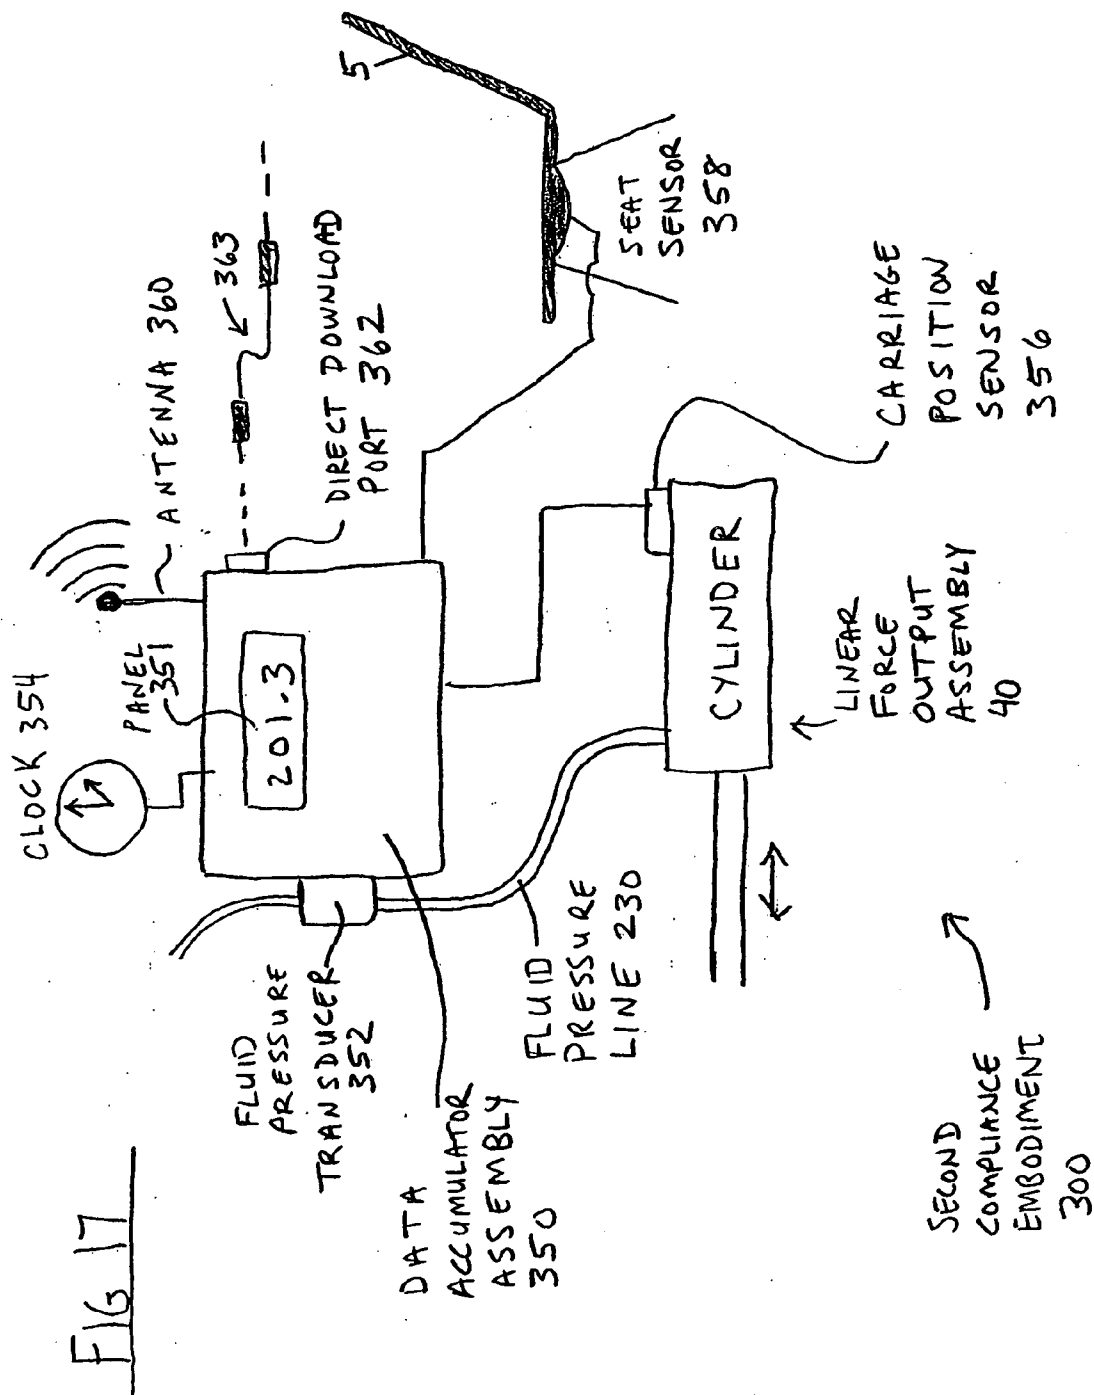 FIG 17
CLOCK 354
PANEL
351
ANTENNA 360
363
201.3
DIRECT DOWNLOAD
PORT 362
5
SEAT
SENSOR
358
FLUID
PRESSURE
TRANSDUCER
352
DATA
ACCUMULATOR
ASSEMBLY
350
FLUID
PRESSURE
LINE 230
CYLINDER
CARRIAGE
POSITION
SENSOR
356
LINEAR
FORCE
OUTPUT
ASSEMBLY
40
SECOND
COMPLIANCE
EMBODIMENT
300